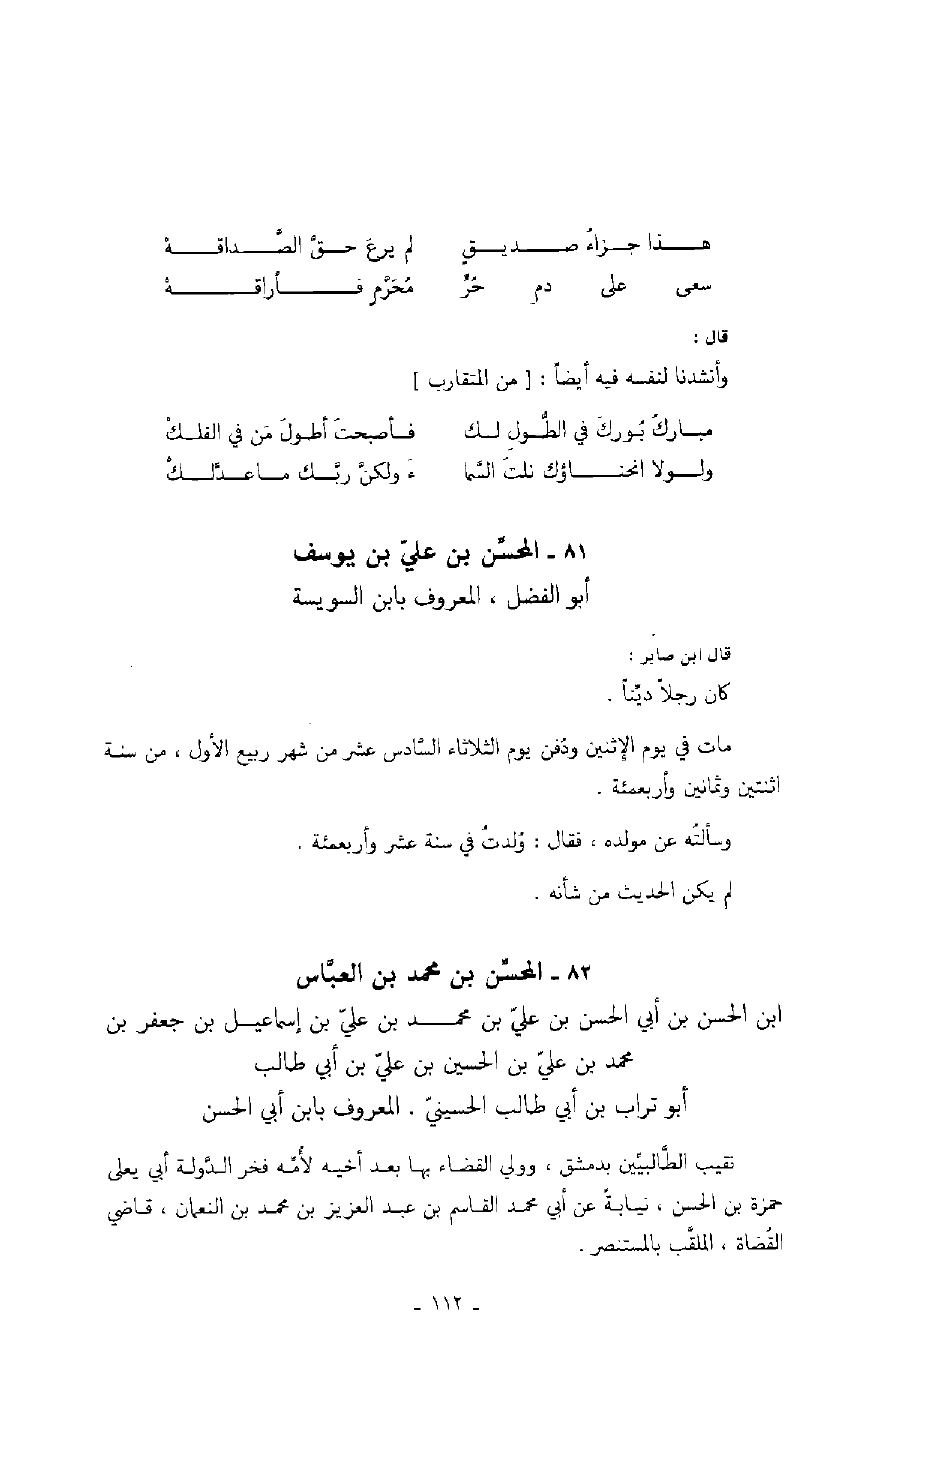 هذا جزاءُ صديقٍ لم يرعَ حقَّ الصَّداقةْ
سعى على دمِ حُرٍّ مُحَرَّمٍ فأراقهْ
قال :
وأنشدنا لنفسه فيه أيضاً : [ من المتقارب ]
مباركُ بُوركَ في الطُّولِ لك فأصبحتَ أطولَ مَن في الفلكْ
ولولا انحناؤك نلتَ السَّما ءَ ولكنَّ ربَّك ماعدَّلكْ
٨١ ـ المحسَّن بن عليّ بن يوسف
أبو الفضل ، المعروف بابن السويسة
قال ابن صابر :
كان رجلاً ديِّناً .
مات في يوم الإثنين ودُفن يوم الثلاثاء السَّادس عشر من شهر ربيع الأول ، من سنة
اثنتين وثمانين وأربعمئة .
وسألتُه عن مولده ، فقال : وُلدتُ في سنة عشر وأربعمئة .
لم يكن الحديث من شأنه .
٨٢ ـ المحسَّن بن محمد بن العبَّاس
ابن الحسن بن أبي الحسن بن عليّ بن محمد بن عليّ بن إسماعيل بن جعفر بن
محمد بن عليّ بن الحسين بن عليّ بن أبي طالب
أبو تراب بن أبي طالب الحسينيّ . المعروف بابن أبي الحسن
نقيب الطَّالبيّين بدمشق ، وولي القضاء بها بعد أخيه لأُمِّه فخر الدَّولة أبي يعلى
حمزة بن الحسن ، نيابةً عن أبي محمد القاسم بن عبد العزيز بن محمد بن النعمان ، قاضي
القُضاة ، الملقَّب بالمستنصر .
ـ ١١٢ ـ